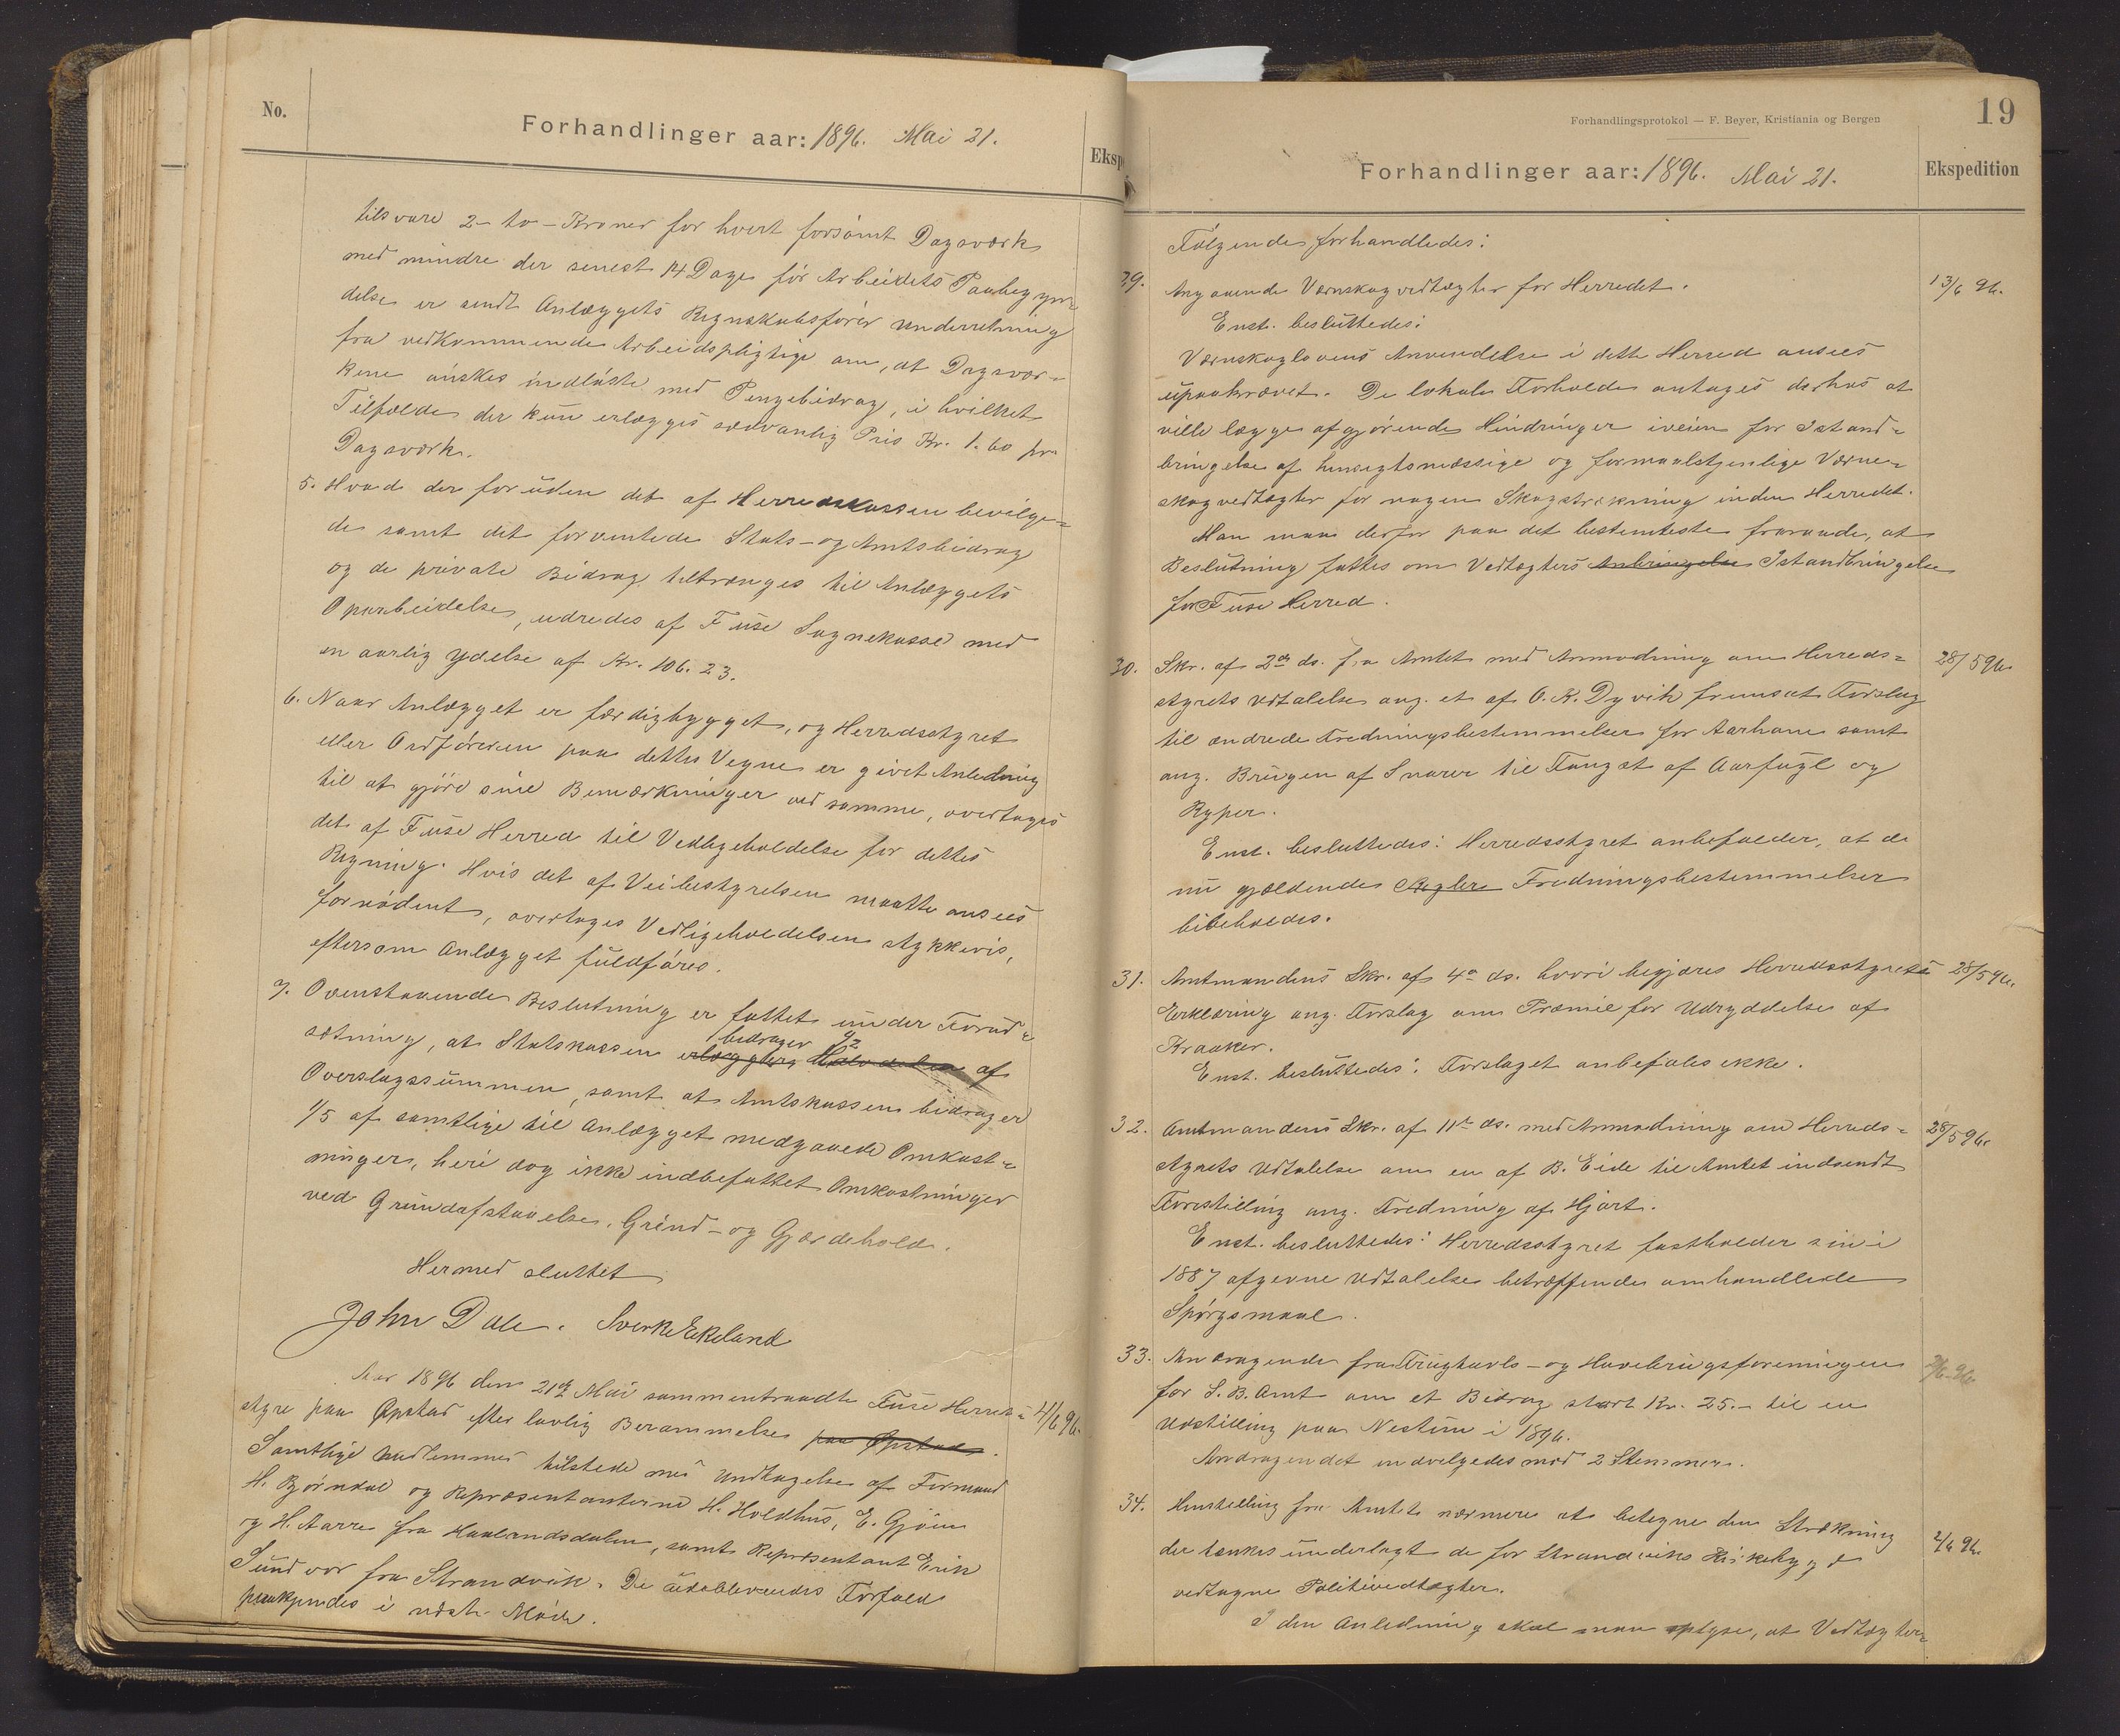 No.
Forhandlinger aar: 1896. Mai 21.
Eksp
tilsvare 2 - to - Kroner for hvert forsømt Dagsværk
med mindre der senest 14 Dage før Arbeidets Paabegyn-
delse er sendt Anlæggets Regnskabsfører Underretning
fra vedkommende Arbeidspligtige om, at Dagsvær-
kene ønskes indløste med Pengebidrag, i hvilket
Tilfælde der kun erlægges sædvanlig Pris Kr. 1.60 pr.
Dagsværk.
5. Hvad der foruden det af Herredskassen bevilge-
de samt det forventede Stats- og Amtsbidrag
og de private Bidrag tiltrænges til Anlæggets
Oparbeidelse, udredes af Fuse Sognekasse med
en aarlig Ydelse af Kr. 106.23.
6. Naar Anlægget er færdigbygget, og Herredsstyret
eller Ordføreren paa dettes Vegne er givet Anledning
til at gjøre sine Bemærkninger ved samme, overtages
det af Fuse Herred til Vedligeholdelse for dettes
Regning. Hvis det af Veibestyrelsen maatte ansees
fornødent, overtages Vedligeholdelsen stykkevis,
eftersom Anlægget fuldføres.
7. Ovenstaaende Beslutning er fattet under Forud-
sætning, at Statskassen bidrager 1/2 af
Overslagssummen, samt at Amtskassen bidrager
1/5 af samtlige til Anlægget medgaaede Omkost-
ninger, heri dog ikke indbefattet Omkostninger
ved Grundafstaaelse, Grind- og Gjærdehold.
Hermed sluttet
John Dale. Sverke Ekeland
Aar 1896 den 21de Mai sammentraadte Fuse Herreds-
styre paa Opstad efter lovlig Berammelse paa Opstad.
4/6 96.
Samtlige Medlemmer tilstede med Undtagelse af Formand
H. Bjørndal og Repræsentanterne H. Holdhus, E. Gjøen
og H. Aarre fra Haalandsdalen, samt Repræsentant Erik
Sundvor fra Strandvik. De udeblevendes Forfald
paakjendes i næste Møde.
Forhandlingsprotokol — F. Beyer, Kristiania og Bergen
19
Forhandlinger aar: 1896. Mai 21.
Ekspedition
Følgende forhandledes:
29. Angaaende Værnskogvedtægter for Herredet.
13/6 96.
Enst. besluttedes:
Værnskoglovens Anvendelse i dette Herred ansees
upaakrævet. De lokale Forholde antages derhos at
ville lægge afgjørende Hindringer iveien for Istand-
bringelse af hensigtsmæssige og formaalstjenlige Værne-
skogvedtægter for nogen Skogstrækning inden Herredet.
Man maa derfor paa det bestemteste fraraade, at
Beslutning fattes om Vedtægters Anbringelse Istandbringelse
for Fuse Herred.
30. Skr. af 2den ds. fra Amtet med Anmodning om Herreds-
28/5 96.
styrets Udtalelse ang. et af O. K. Dyvik fremsat Forslag
til ændrede Fredningsbestemmelser for Aarhane samt
ang. Brugen af Snarer til Fangst af Aarfugl og
Ryper.
Enst. besluttedes: Herredsstyret anbefaler, at de
nu gjældende Regler Fredningsbestemmelser
bibeholdes.
31. Amtmandens Skr. af 4de ds. hvori begjæres Herredsstyrets
28/5 96.
Erklæring ang. Forslag om Præmie for Udryddelse af
Kraaker.
Enst. besluttedes: Forslaget anbefales ikke.
32. Amtmandens Skr. af 11te ds. med Anmodning om Herreds-
28/5 96.
styrets Udtalelse om en af B. Eide til Amtet indsendt
Forestilling ang. Fredning af Hjort.
Enst. besluttedes: Herredsstyret fastholder sin i
1887 afgivne Udtalelse betræffende omhandlede
Spørgsmaal.
33. Andragende fra Frugtavls- og Havebrugsforeningen
2/6 96.
for S. B. Amt om et Bidrag stort Kr. 25.- til en
Udstilling paa Nestun i 1896.
Andragendet indvilgedes mod 2 Stemmer.
34. Henstilling fra Amtet nærmere at betegne den Strækning
2/6 96.
der tænkes underlagt de for Strandviks Kirkebygd
vedtagne Politivedtægter.
I den Anledning skal man oplyse, at Vedtægter-